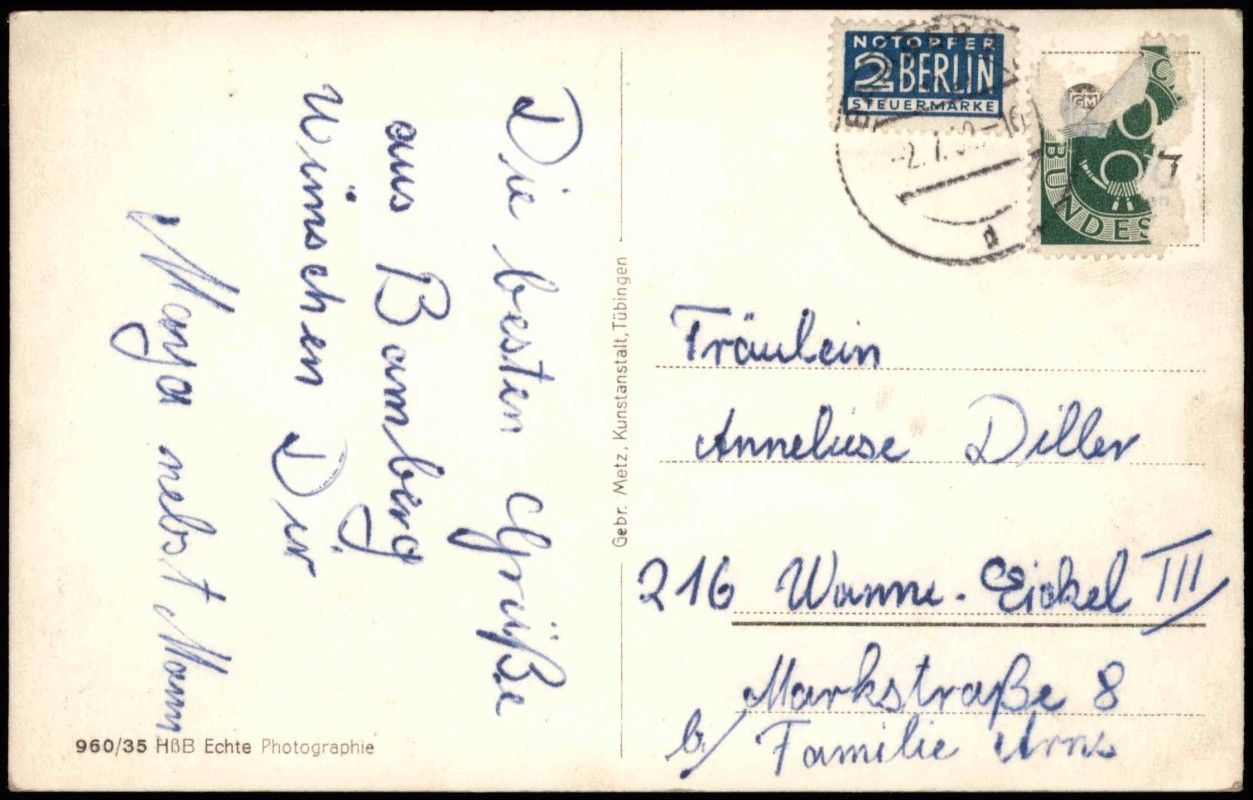 Die besten Grüße
aus Bamberg
wünschen Dir
Manja nebst Mann
960/35 HßB Echte Photographie
Gebr. Metz, Kunstanstalt, Tübingen
NOTOPFER
2 BERLIN
STEUERMARKE
BUNDES
Fräulein
Anneliese Diller
216 Wanne-Eickel III
Markstraße 8
b/ Familie Arns